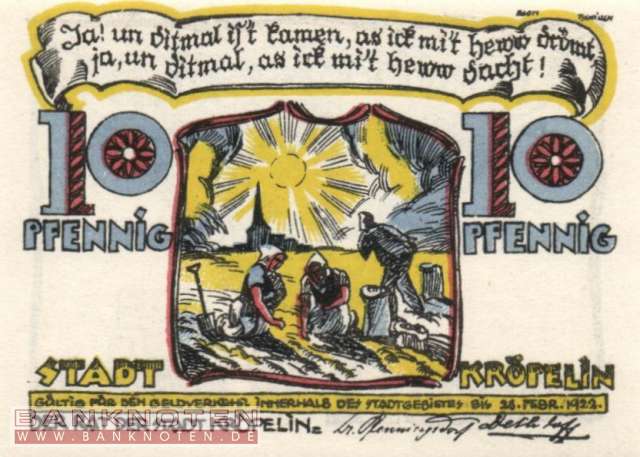 Ja! un ditmal is't kamen, as ick mi't heww drömt,
ja, un ditmal, as ick mi't heww dacht!
10 10
PFENNIG PFENNIG
STADT KRÖPELIN
GÜLTIG FÜR DEN GELDVERKEHR INNERHALB DES STADTGEBIETES BIS 28. FEBR. 1922.
DER RAT DER STADT KRÖPELIN
BANKNOTEN
WWW.BANKNOTEN.DE